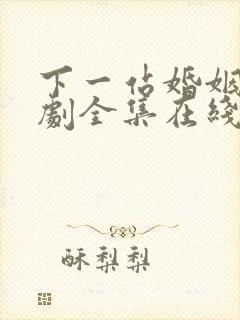 下一站婚姻
劇全集在綫
酥梨梨